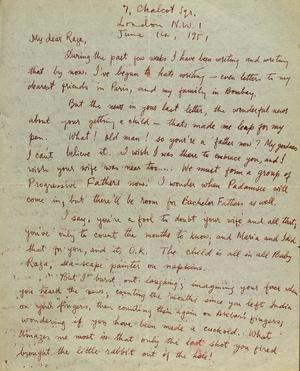 7, Chalcot Sqr.
London N.W. 1
June 14, 1951
My dear Raza,
During the past few weeks I have been writing and writing
that by now I've began to hate writing – even letters to my
dearest friends in Paris, and my family in Bombay.
But the news in your last letter, the wonderful news
about your getting a child – thats made me leap for my
pen. What! Old man! so you're a father now? My goodness
I can't believe it. I wish I was there to embrace you, and I
wish your wife was near too.... We must form a group of
Progressive Fathers now. I wonder when Padamsee will
come in, but there'll be room for Bachelor Fathers as well.
I say, you're a fool to doubt your wife and all that,
you've only to count the months to know, and Maria and I did
that for you, and its O.K. The child is all in all Baby
Raza, sea-scape painter on napkins.
But I burst out laughing imagining your face when
you heard the news, counting the months since you left India
on your fingers, then counting them again on Akbar's fingers,
wondering if you have been made a cuckold. What
amazes me most is that only the last shot you fired
brought the little rabbit out of the hole!